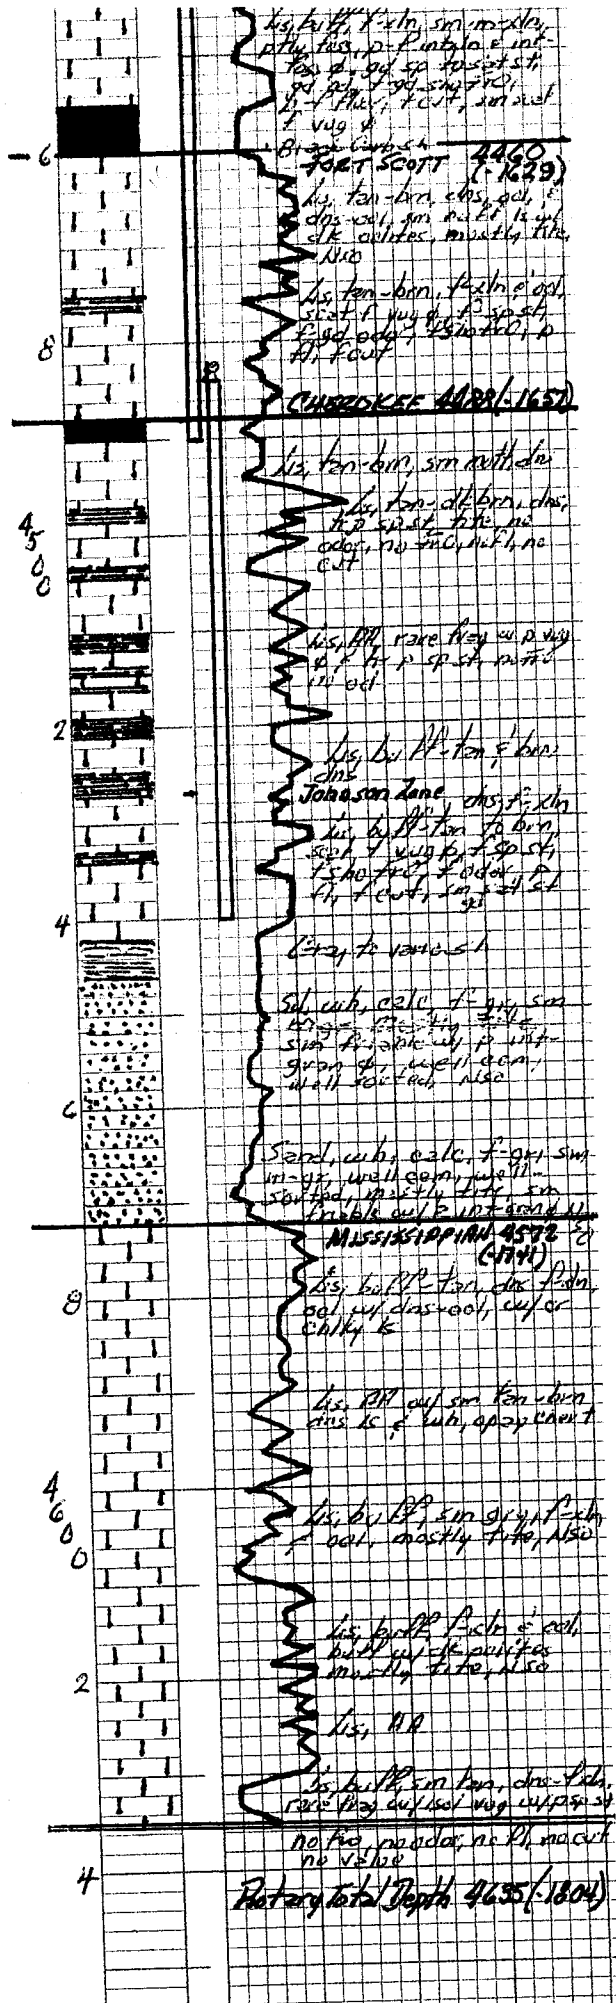 Lis, buff, f-xln, sm m-xln,
ptly fos, p-f intxln & int-
fos φ, gd sp to sat st,
gd od, f-gd sho fro,
f cut, sm scat
f vug φ
Black Carb sh
6
FORT SCOTT 4460
(-1629)
Lis, tan-brn, dns, ool, &
dns-ool, sm mott ls w/
dk oolites, mostly tite,
NSO
Lis, tan-brn, f-xln & ool,
scat f vug φ, f sp st,
f-gd odor, f sho fro, p
fl, f cut
8
CHEROKEE 4488 (-1657)
Lis, tan-brn, sm mott, dns
Lis, tan-dk brn, dns,
tr p sp st, tite, no
odor, no fro, no fl, no
cut
4500
Lis, AA, rare frag w/ p vug
φ & tr p sp st, no fro
no od
2
Lis, buff-tan & brn
dns
Johnson Zone
dns, f-xln
Lis, buff-tan to brn,
scat f vug p, f sp st,
f sho fro, f odor, p
fl, f cut, sm sat st
4
Gray to varic sh
Sd, wh, calc, f-gr, sm
m-gr, mostly tite
sm friable w/ p int-
gran φ, well cem,
well sorted, NSO
6
Sand, wh, calc, f-gr, sm
m-gr, well cem, well-
sorted, mostly tite, sm
friable w/ p int-gran φ
MISSISSIPPIAN 4572
(-1741)
8
Lis, buff-tan, dns f-xln,
ool w/ dns-ool, w/ cr
chlky ls
Lis, AA w/ sm tan-brn
dns ls & wh, opaq chert
4600
Lis, buff, sm gry, f-xln
& ool, mostly tite, NSO
Lis, buff, f-xln & ool,
buff w/ dk oolites
mostly tite, NSO
2
Lis, AA
Lis, buff, sm tan, dns-f-xln,
rare frag w/ isol vug w/ p sp st
no fro, no odor, no fl, no cut
no value
4
Rotary Total Depth 4635 (-1804)